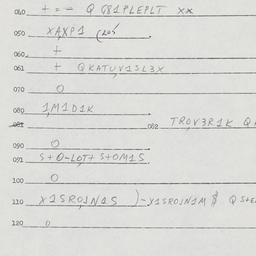 040 + = = Q G81PLEPLT xx
050 XAXP1 (205
060 +
061 + QKATUV1SL3X
070 0
080 1M1D1K
081 082 TR0V3R1K Q
090 0
091 S+O-LOT+ S+OM1S
100 0
110 X1SROJN1S )-X1SROJN1M $ Q S+E
120 0